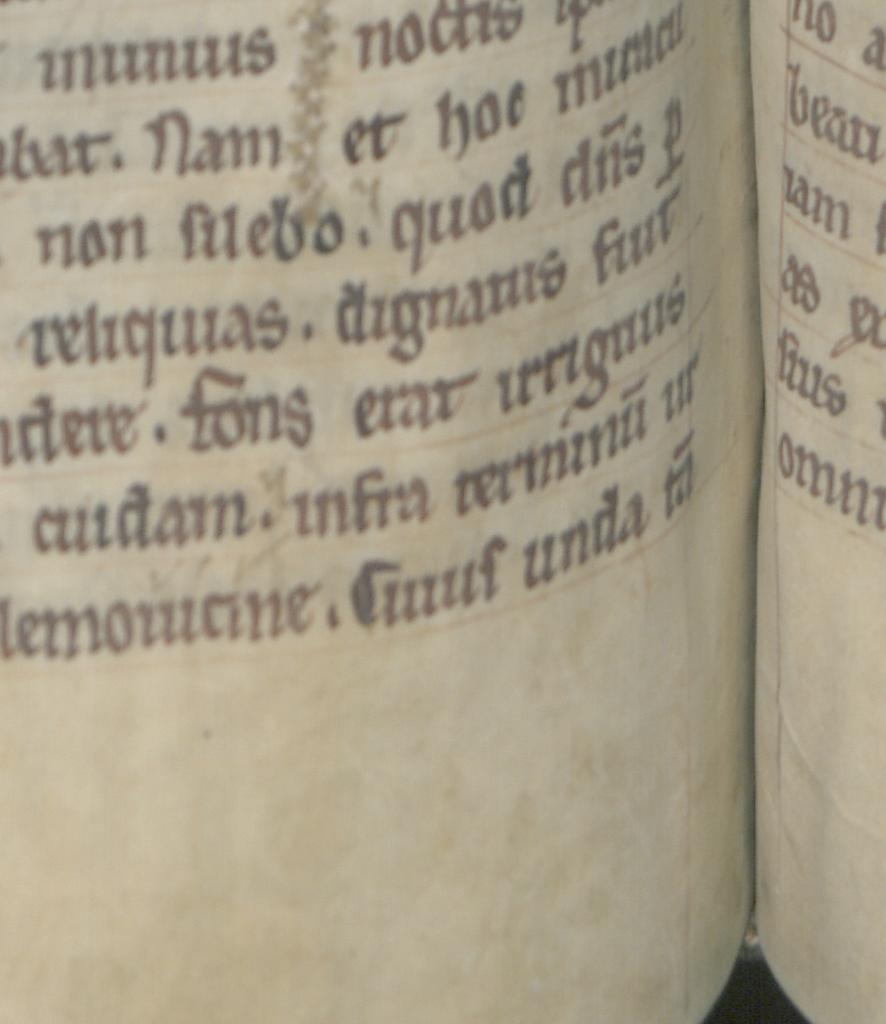 munus noctis
bat. Nam et hoc
non silebo. quod dn̄s ꝑ
reliquias. dignatus fiut̄
ndere. fons erat irriguus
cuidam. infra terminū ur
lemouicine. Cuius unda tā
no a
beati
nam
as
situs
omni